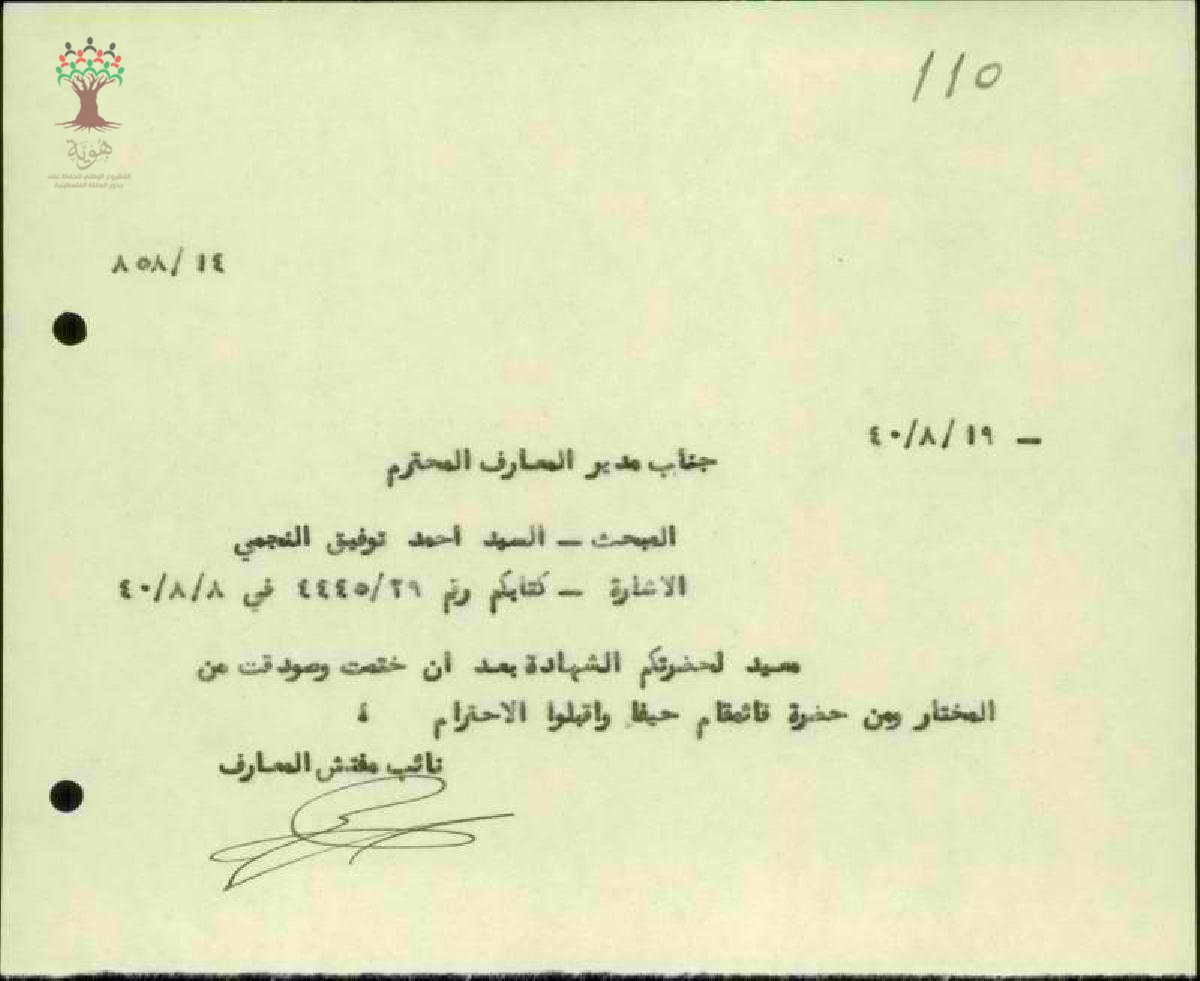 110
هوية
المشروع الوطني للحفاظ على
جذور العائلة الفلسطينية
١٤ /٨٥٨
ــ ١٩ /٨/٤٠
جناب مدير المعارف المحترم
المبحث ــ السيد احمد توفيق النجمي
الاشارة ــ كتابكم رقم ٢٩/٤٤٤٥ في ٤٠/٨/٨
معيد لحضرتكم الشهادة بعد ان ختمت وصودقت من
المختار ومن حضرة قائمقام حيفا واقبلوا الاحترام ؛
نائب مفتش المعارف